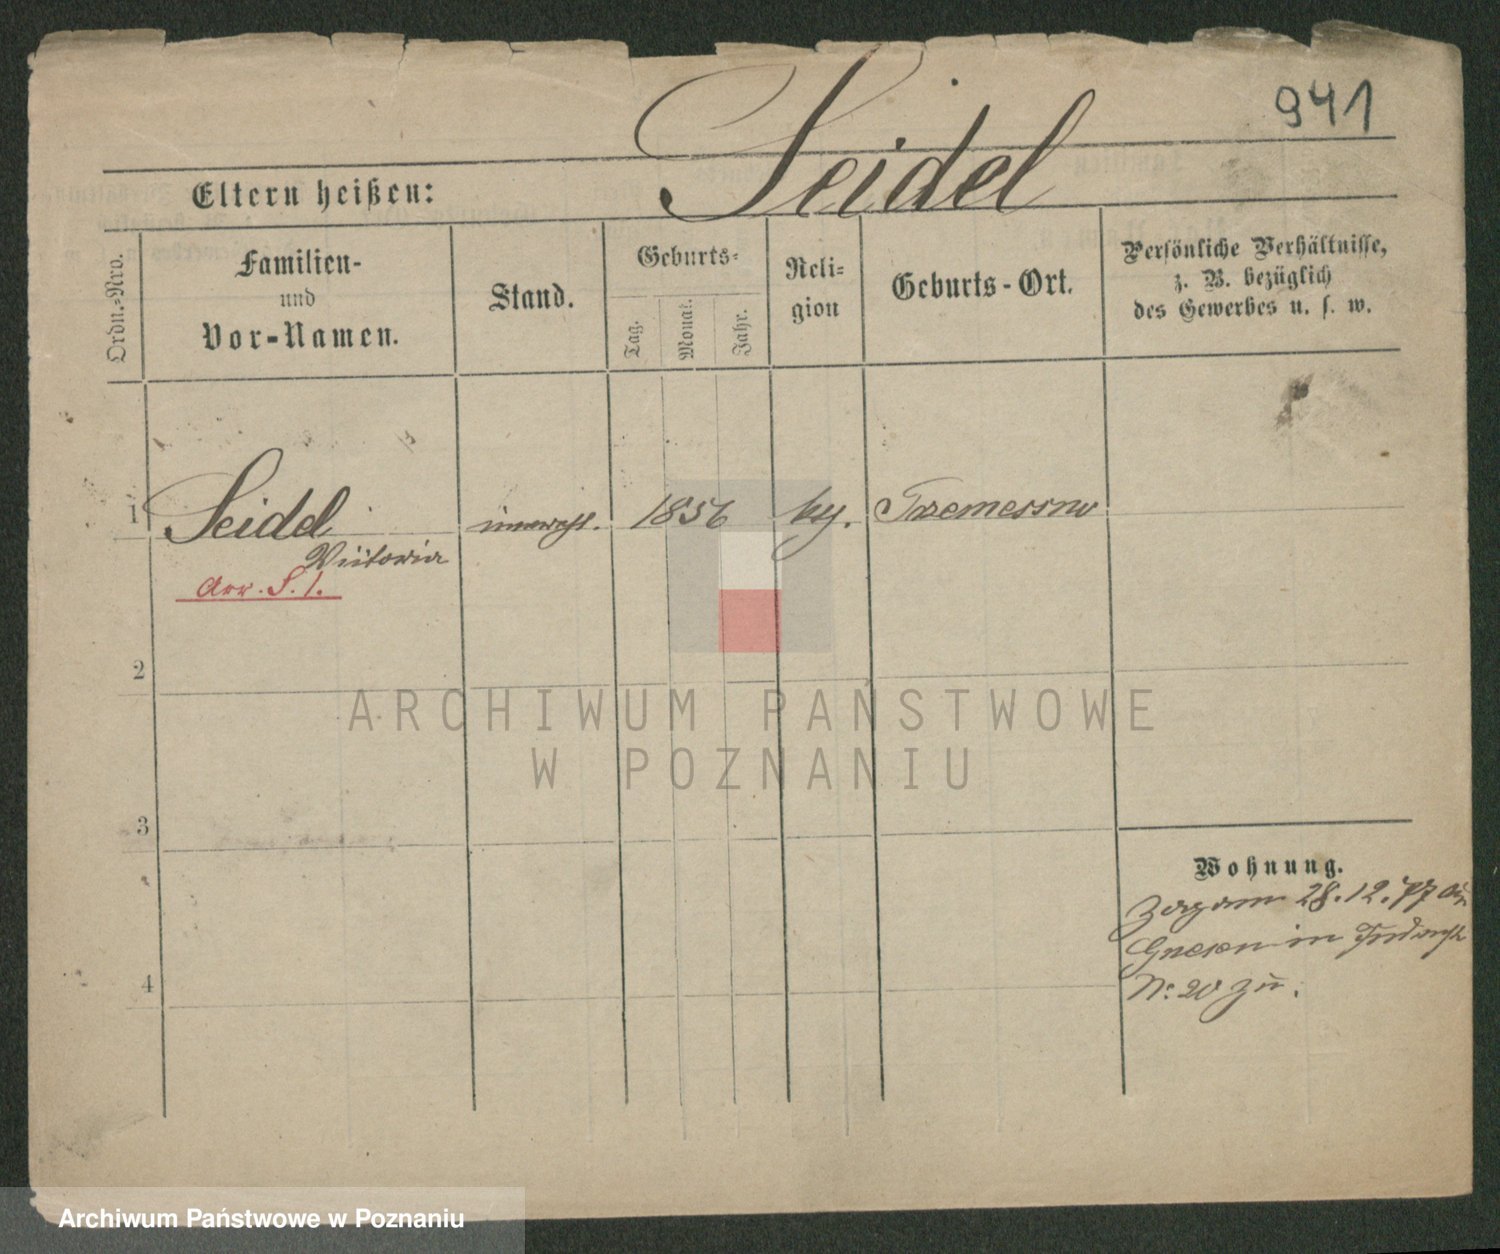 941
Seidel
Eltern heißen:
Ordn.-Nro.
Familien-
und
Vor-Namen.
Stand.
Geburts-
Tag.
Monat.
Jahr.
Reli-
gion
Geburts-Ort.
Persönliche Verhältnisse,
z. B. bezüglich
des Gewerbes u. s. w.
1
Seidel
Victoria
unverehl.
1856
Tremessno
2
3
4
Wohnung.
Zog am 28.12.77 aus
Gnesen in
No. 20 zu.
ARCHIWUM PAŃSTWOWE
W POZNANIU
Archiwum Państwowe w Poznaniu